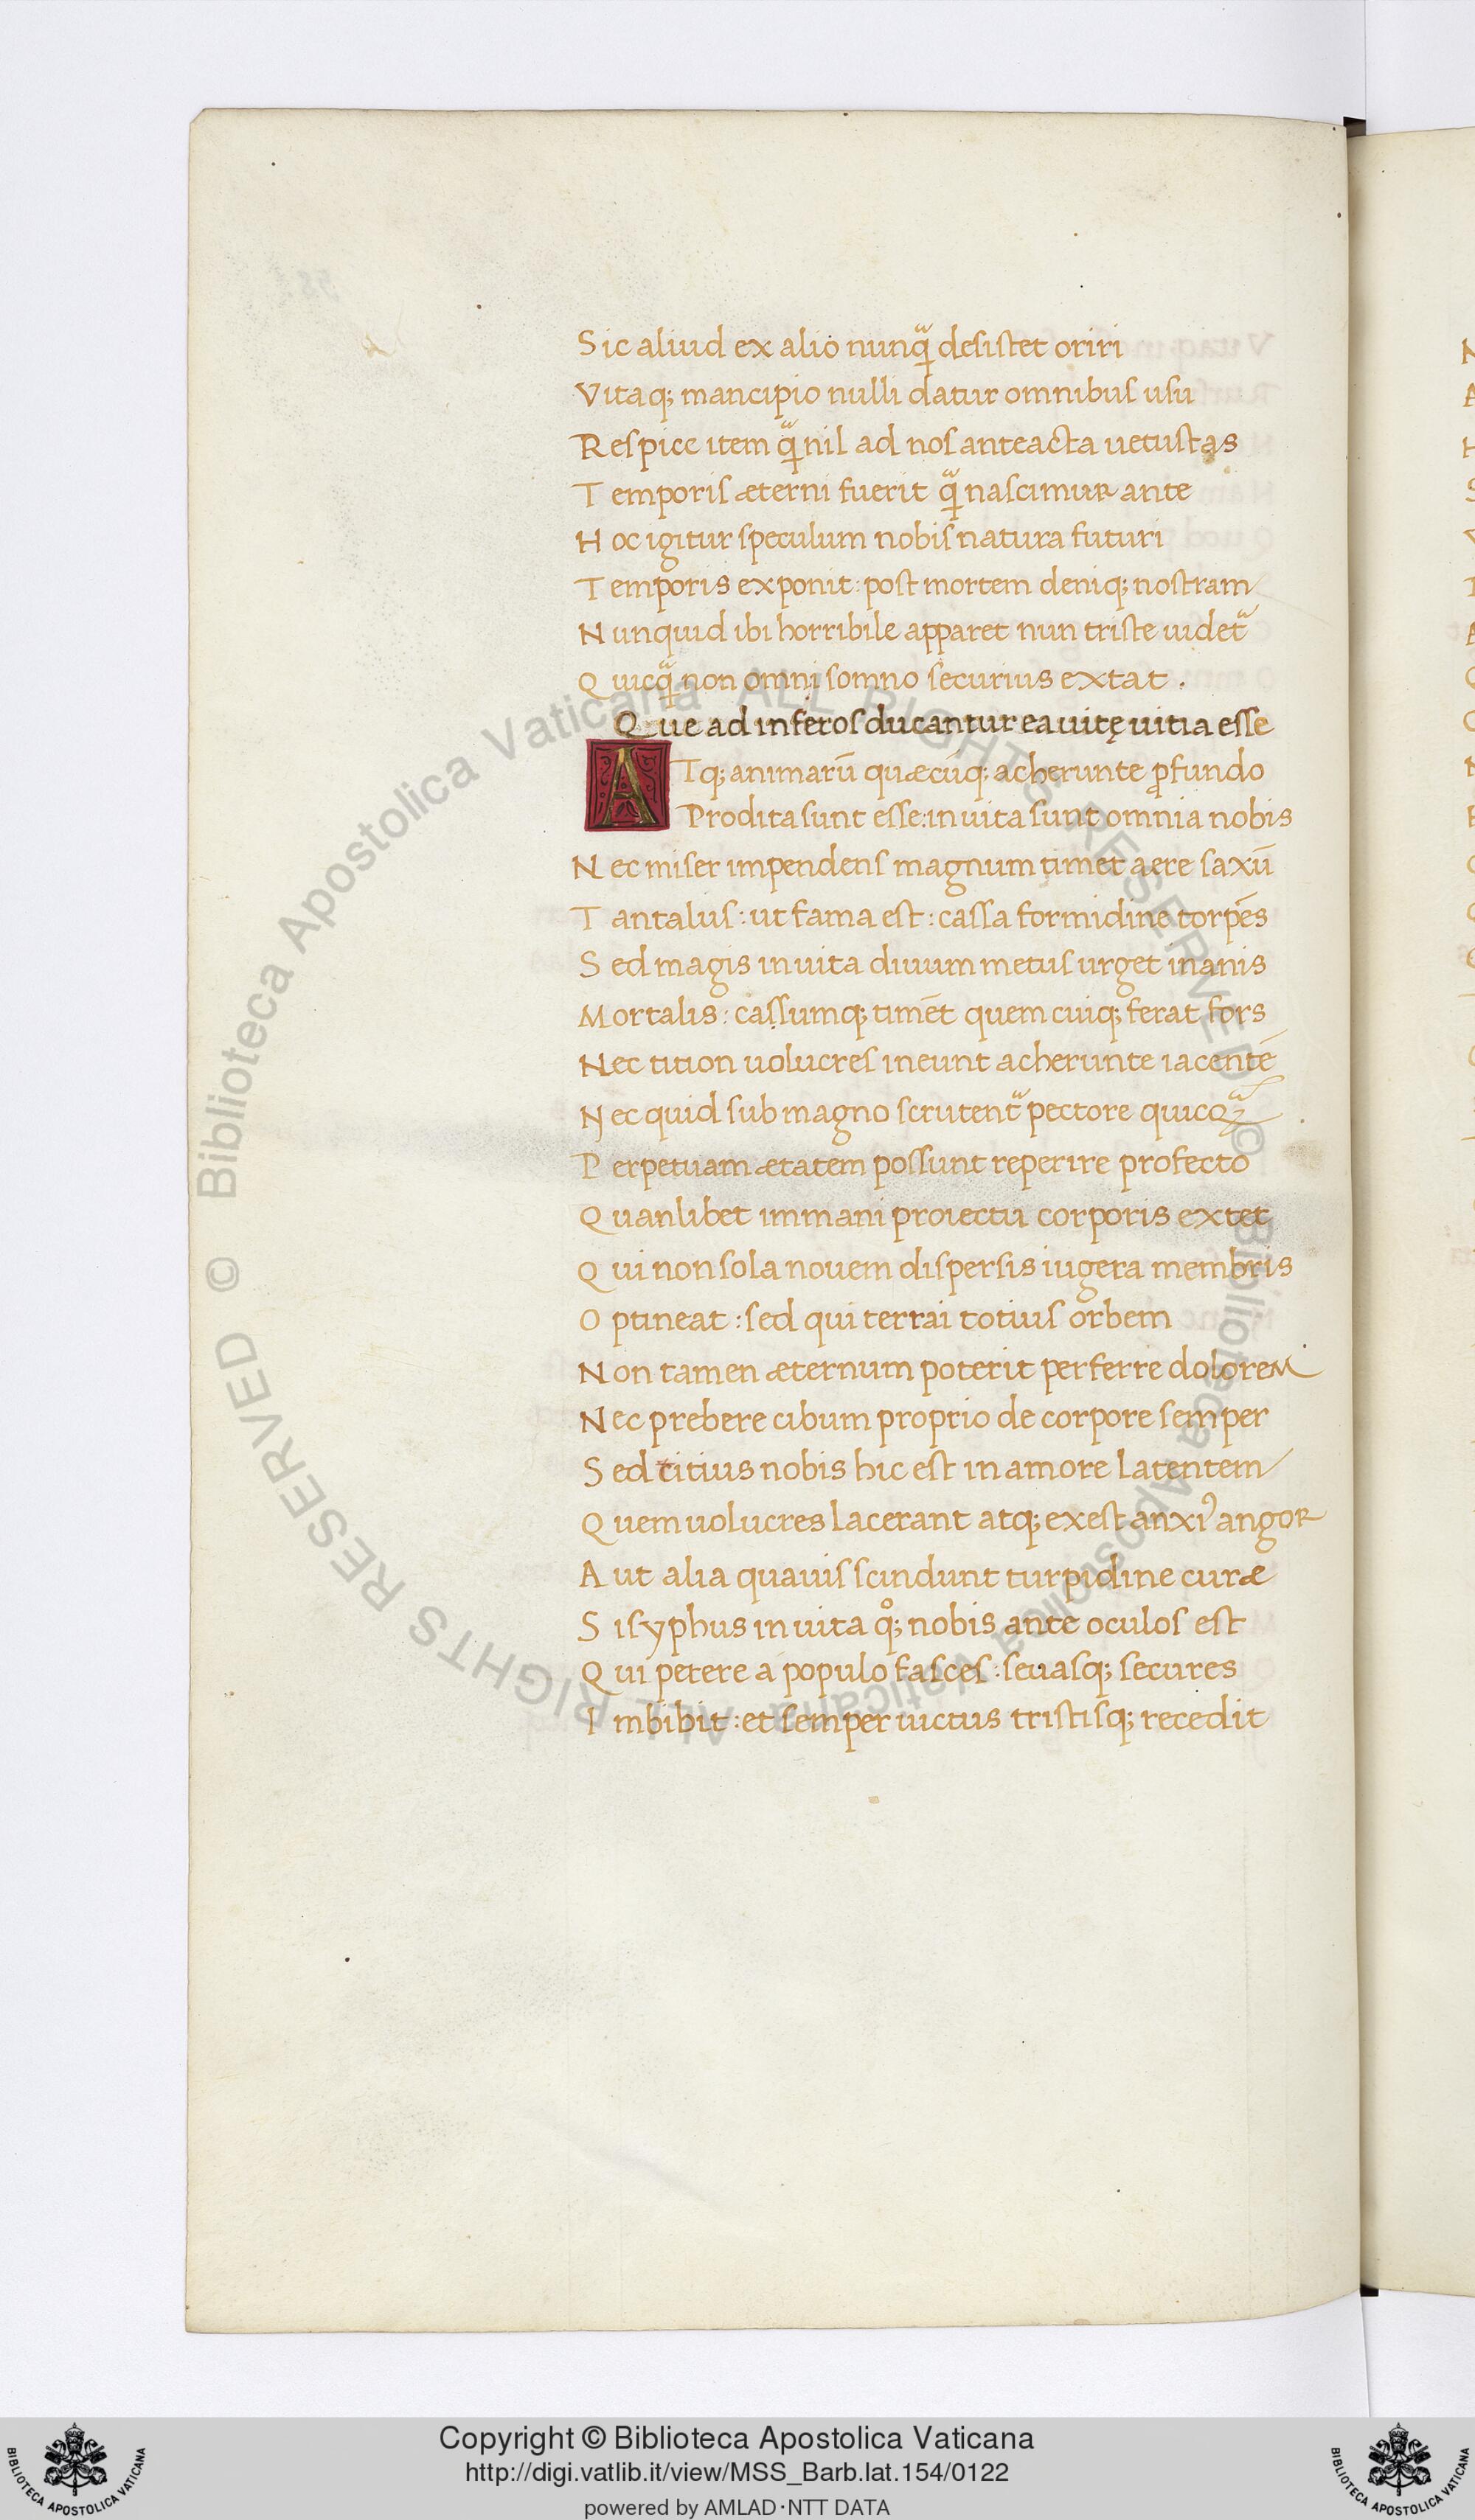 Sic aliud ex alio nunq̃ desistet oriri
Vitaq; mancipio nulli datur omnibus usu
Respice item q̃ nil ad nos anteacta uetustas
Temporis æterni fuerit q̃ nascimur ante
Hoc igitur speculum nobis natura futuri
Temporis exponit: post mortem deniq; nostram
Nunquid ibi horribile apparet nun triste uidet᷑
Quicq̃ non omni somno securius extat .
Que ad inferos ducantur ea uitę uitia esse
ATq; animarū quæcūq; acherunte ꝓfundo
Prodita sunt esse: in uita sunt omnia nobis
Nec miser impendens magnum timet aere saxū
Tantalus: ut fama est: cassa formidine torpēs
Sed magis in uita diuum metus urget inanis
Mortalis: cassumq; timēt quem cuiq; ferat fors
Nec tition uolucres ineunt acherunte iacentē
Nec quid sub magno scrutent᷑ pectore quicq̃
Perpetuam ætatem possunt reperire profecto
Quanlibet immani proiectu corporis extet
Qui non sola nouem dispersis iugera membris
Optineat: sed qui terrai totius orbem
Non tamen æternum poterit perferre dolorem
Nec prebere cibum proprio de corpore semper
Sed titius nobis hic est in amore latentem
Quem uolucres lacerant atq; exest anxiꝰ angor
Aut alia quauis scindunt turpidine curæ
Sisyphus in uita qͦ; nobis ante oculos est
Qui petere a populo fasces: seuasq; secures
Imbibit: et semper uictus tristisq; recedit
© Biblioteca Apostolica Vaticana ALL RIGHTS RESERVED
© Biblioteca Apostolica Vaticana ALL RIGHTS RESERVED
Copyright © Biblioteca Apostolica Vaticana
http://digi.vatlib.it/view/MSS_Barb.lat.154/0122
powered by AMLAD·NTT DATA
BIBLIOTECA APOSTOLICA VATICANA
BIBLIOTECA APOSTOLICA VATICANA